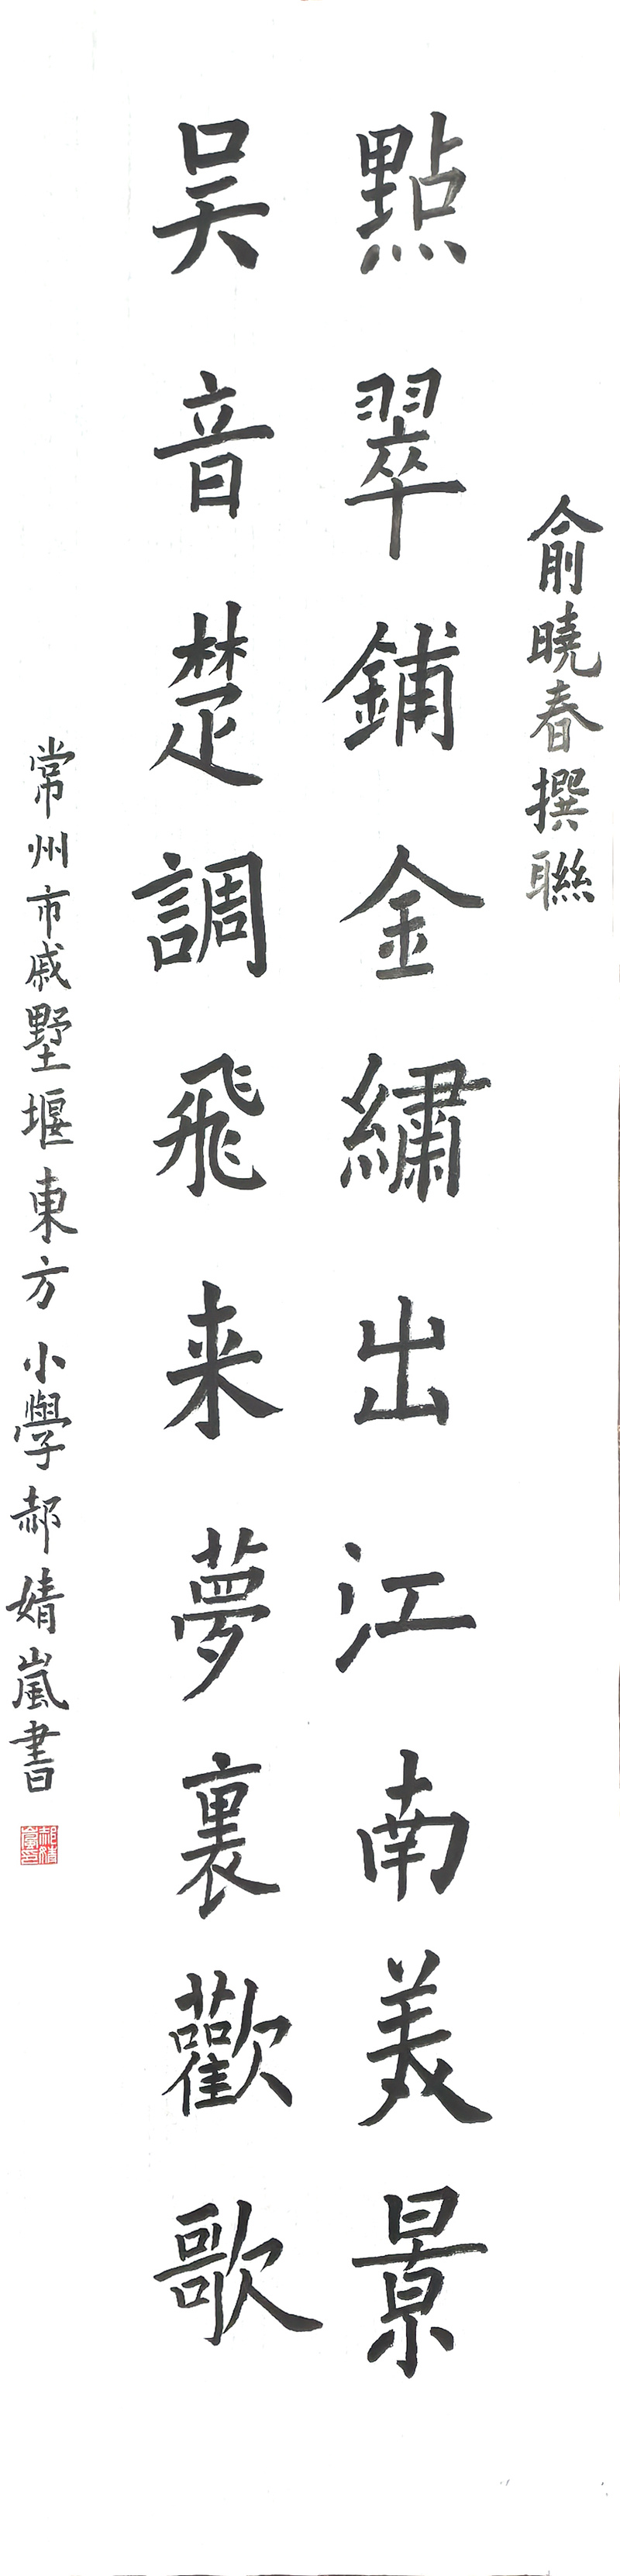 俞曉春撰聯
點翠鋪金繡出江南美景
吴音楚調飛来夢裏歡歌
常州市戚墅堰東方小學郝婧嵐書